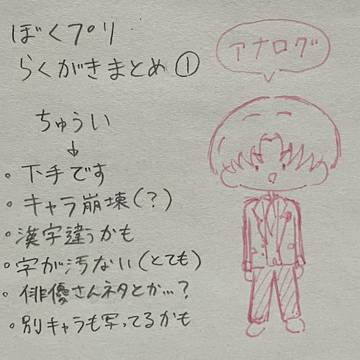 ぼくプリ
らくがきまとめ①
アナログ
ちゅうい
↓
・下手です
・キャラ崩壊(？)
・漢字違うかも
・字が汚ない(とても)
・俳優さんネタとか…？
・別キャラも写ってるかも